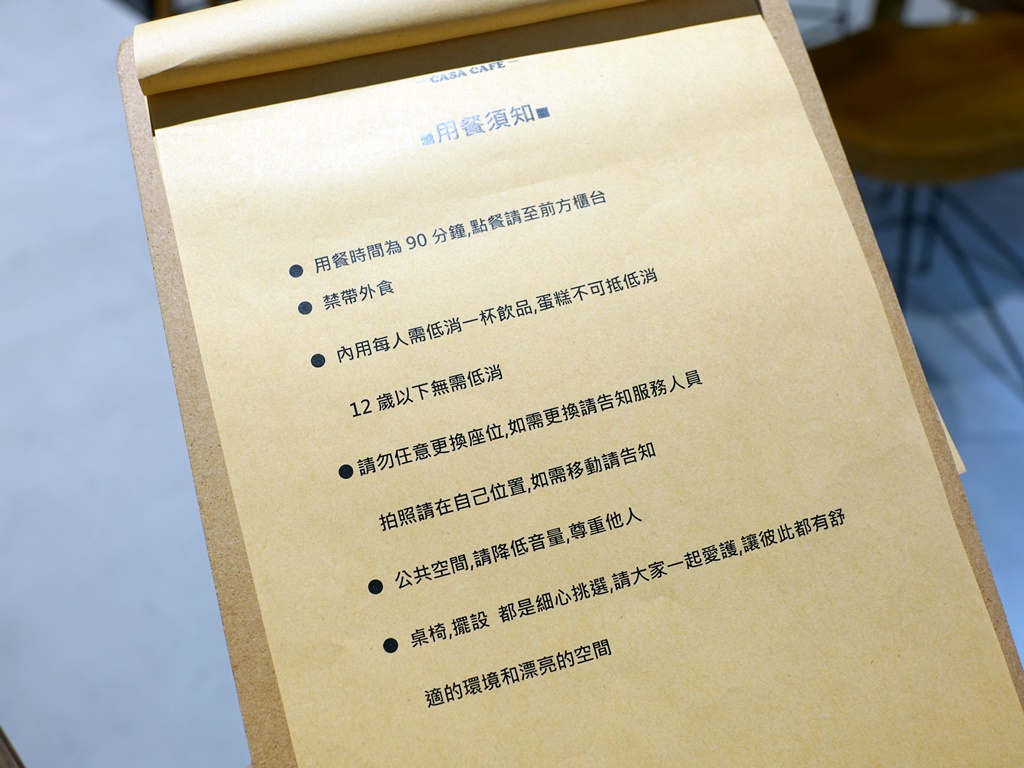 CASA CAFE
■用餐須知■
● 用餐時間為 90 分鐘,點餐請至前方櫃台
● 禁帶外食
● 內用每人需低消一杯飲品,蛋糕不可抵低消
12 歲以下無需低消
● 請勿任意更換座位,如需更換請告知服務人員
拍照請在自己位置,如需移動請告知
● 公共空間,請降低音量,尊重他人
● 桌椅,擺設 都是細心挑選,請大家一起愛護,讓彼此都有舒
適的環境和漂亮的空間